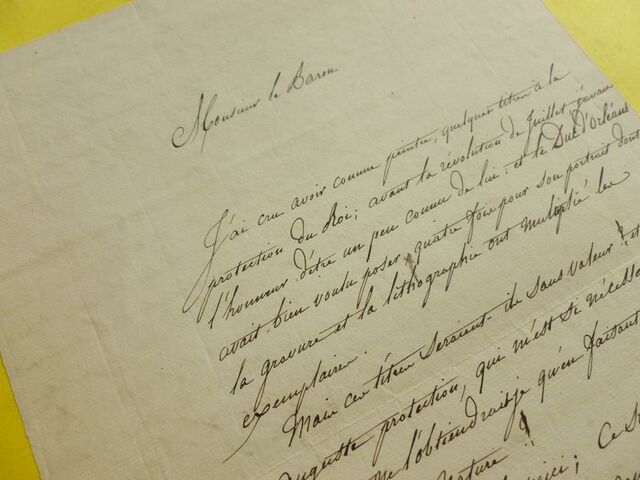 Monsieur le Baron
J'ai cru avoir comme peintre, quelques titres à la
protection du Roi; avant la révolution de Juillet j'avais
l'honneur d'être un peu connu de lui: et le Duc d'Orléans
avait bien voulu poser quatre fois pour son portrait dont
la gravure et la lithographie ont multiplié les
exemplaires.
Mais ces titres seraient ils sans valeur! et
auguste protection, qui m'est si nécessa
ne l'obtiendrais-je qu'en faisant
ature!!
ici; Ce s